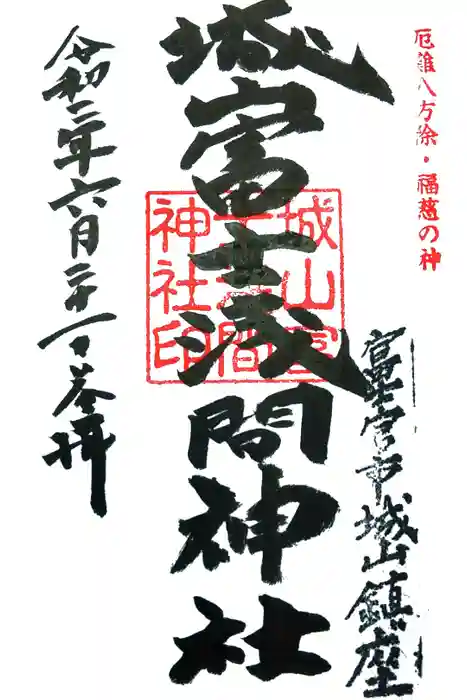 厄難八方除・福慈の神
富士宮市城山鎮座
城富士浅間神社
城山富
士浅間
神社印
令和三年六月二十一日参拝